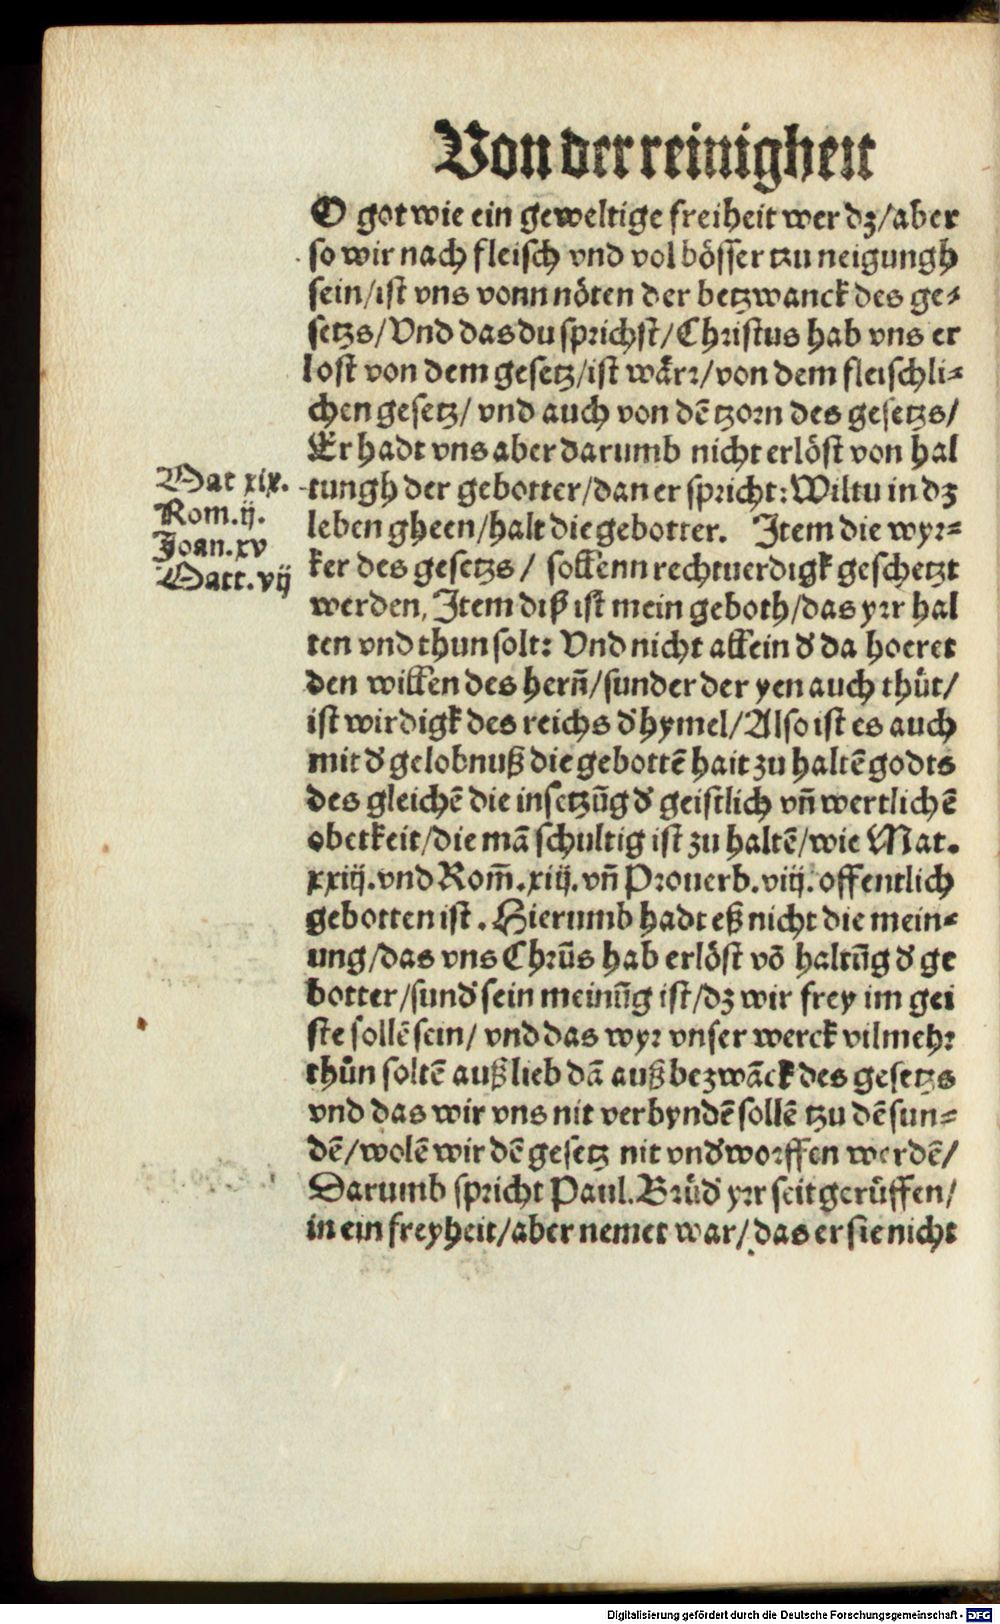 Von der reinigheit
O got wie ein geweltige freiheit wer dz/aber
so wir nach fleisch vnd vol bösser tzu neigungh
sein/ist vns vonn nöten der betzwanck des ge⸗
setzs/Vnd das du sprichst/Christus hab vns er
lost von dem gesetz/ist wårr/von dem fleischli⸗
chen gesetz/ vnd auch von dē tzorn des gesetzs/
Er hadt vns aber darumb nicht erlöst von hal
tungh der gebotter/dan er spricht: Wiltu in dz
leben gheen/halt die gebotter. Item die wyr⸗
ker des gesetzs/ sollenn rechtuerdigk geschetzt
werden, Item diß ist mein geboth/das yrr hal
ten vnd thun solt: Vnd nicht allein d' da hoeret
den willen des hern̄/sunder der yen auch thüt/
ist wirdigk des reichs d' hymel/Also ist es auch
mit d' gelobnuß die gebottē hait zu haltē godts
des gleichē die insetzūg d' geistlich vn̄ wertlichē
obetkeit/die mā schultig ist zu haltē/wie Mat.
xxiij. vnd Rom̄. xiij. vn̄ Prouerb. viij. offentlich
gebotten ist. Hierumb hadt eß nicht die mein⸗
ung/das vns Chrūs hab erlöst vō haltūg d' ge
botter/sund' sein meinūg ist/dz wir frey im gei
ste sollē sein/ vnd das wyr vnser werck vilmehr
thün soltē auß lieb dā auß bezwāck des gesetzs
vnd das wir vns nit verbyndē sollē tzu dē sun⸗
dē/wolē wir dē gesetz nit vnd'worffen werdē/
Darumb spricht Paul. Brüd' yrr seit gerüffen/
in ein freyheit/aber nemet war/das er sie nicht
Mat xix.
Rom. ij.
Joan. xv
Matt. vij
Digitalisierung gefördert durch die Deutsche Forschungsgemeinschaft - DFG